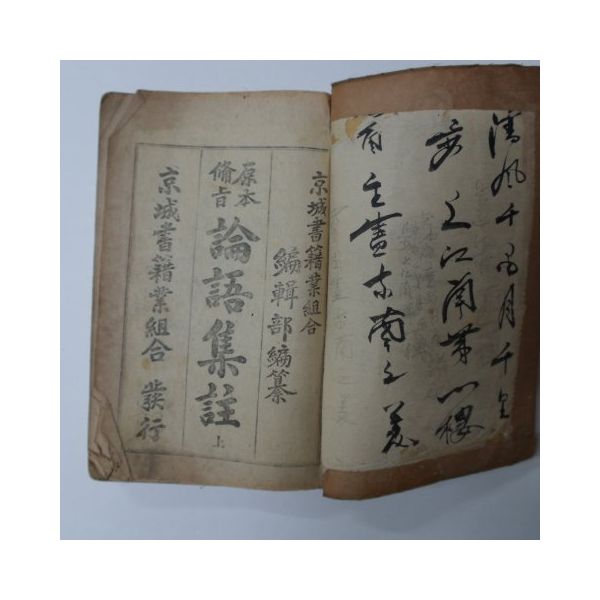 清風千月千里
之江
主盡東南之美
京城書籍業組合
編輯部編纂
原本
備旨
論語集註 上
京城書籍業組合 發行